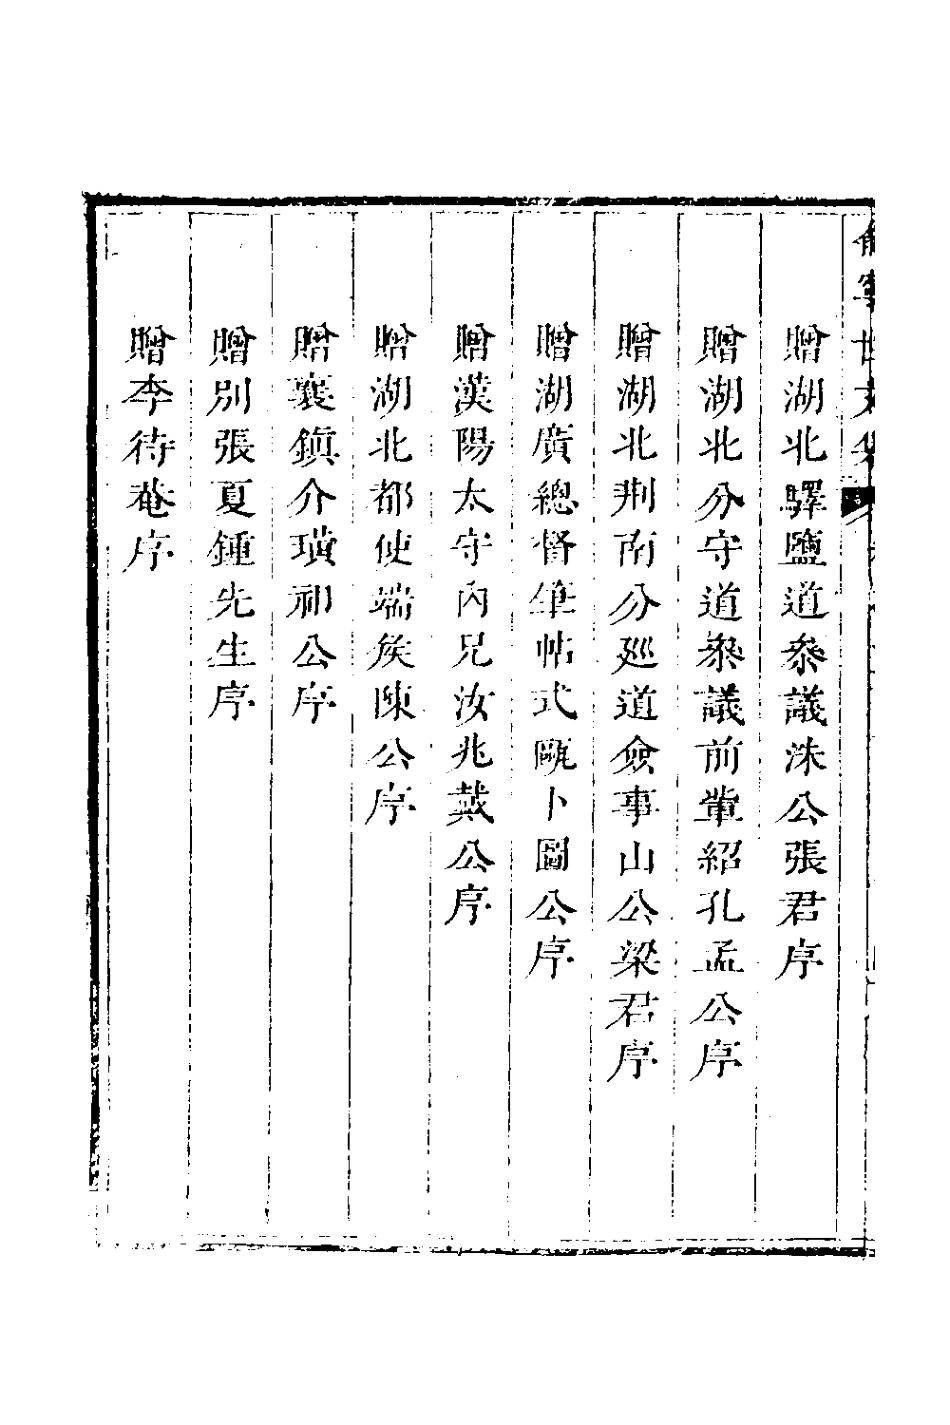 贈湖北驛鹽道叅議洙公張君序
贈湖北分守道叅議前輩紹孔孟公序
贈湖北荆南分廵道僉事山公梁君序
贈湖廣總督筆帖式甌卜圖公序
贈漢陽太守內兄汝兆戴公序
贈湖北都使端矦陳公序
贈襄鎮介璜祁公序
贈別張夏鍾先生序
贈李待菴序